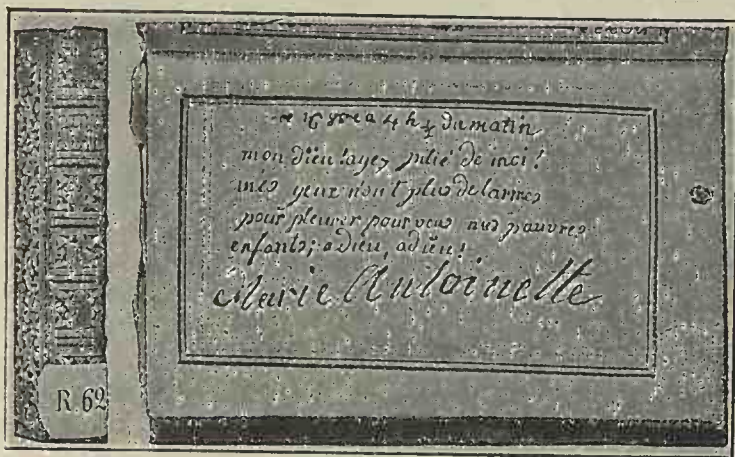 ce 16 8bre a 4 h ½ du matin
mon dieu! ayez pitié de moi!
mes yeux n'ont plus de larmes
pour pleurer pour vous mes pauvres
enfants; adieu, adieu!
Marie Antoinette
R. 62